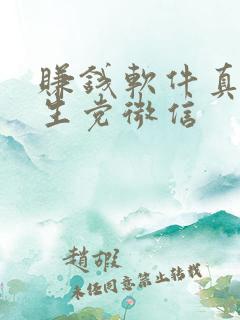 賺錢軟件真
生党微信
趙嘏
未经同意禁止转载